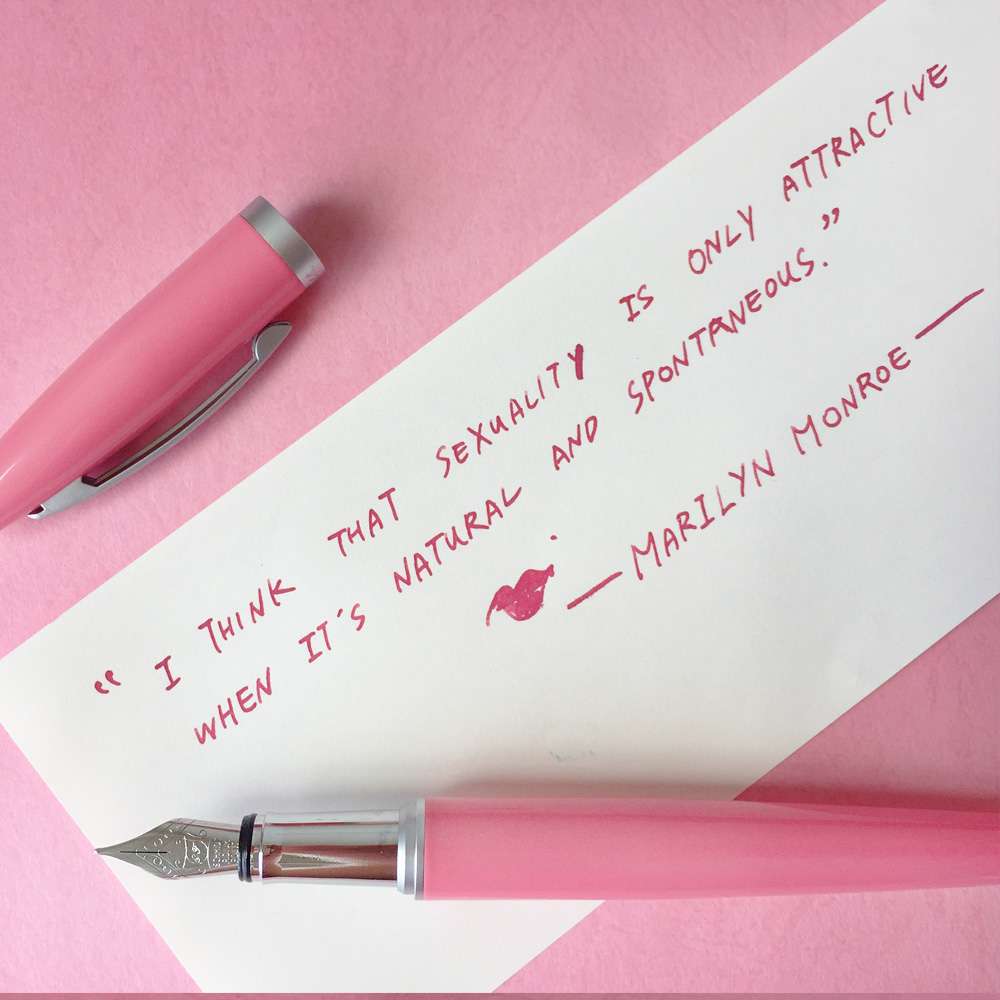 “ I THINK THAT SEXUALITY IS ONLY ATTRACTIVE
WHEN IT'S NATURAL AND SPONTANEOUS.”
— MARILYN MONROE —